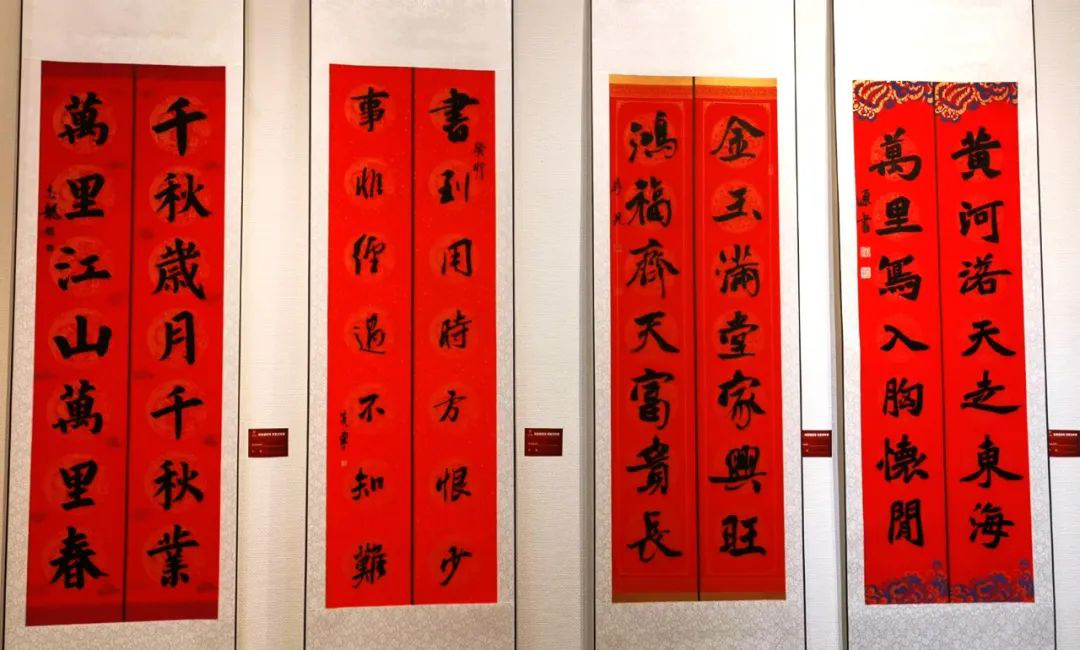 千秋歲月千秋業
萬里江山萬里春
書到用時方恨少
癸卯
事非經過不知難
金玉滿堂家興旺
鴻福齊天富貴長
黄河落天走東海
萬里寫入胸懷間